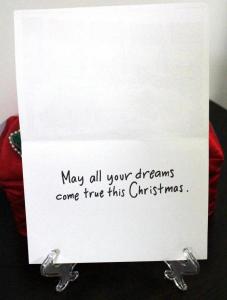 May all your dreams
come true this Christmas.